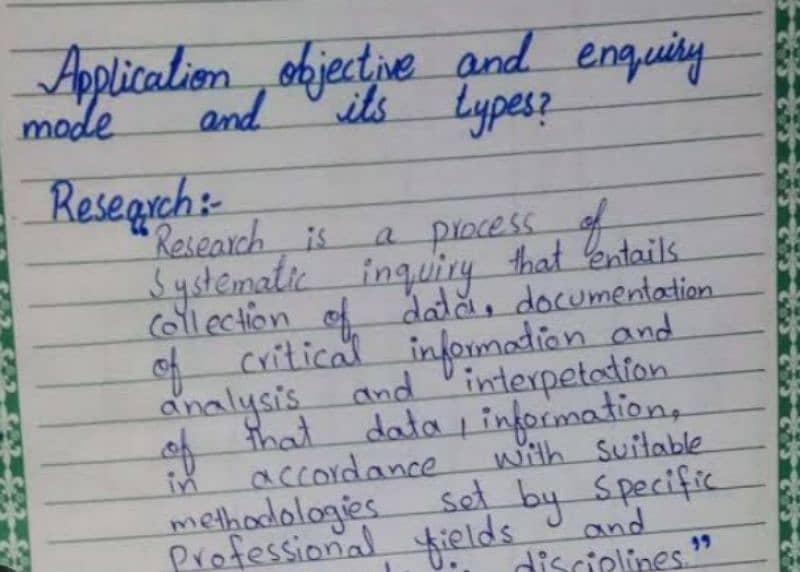 Application objective and enquiry
mode and its types?
Research:-
"Research is a process of
Systematic inquiry that entails
collection of data, documentation
of critical information and
analysis and interpetation
of that data, information,
in accordance with suitable
methodologies set by specific
Professional fields and
disciplines"